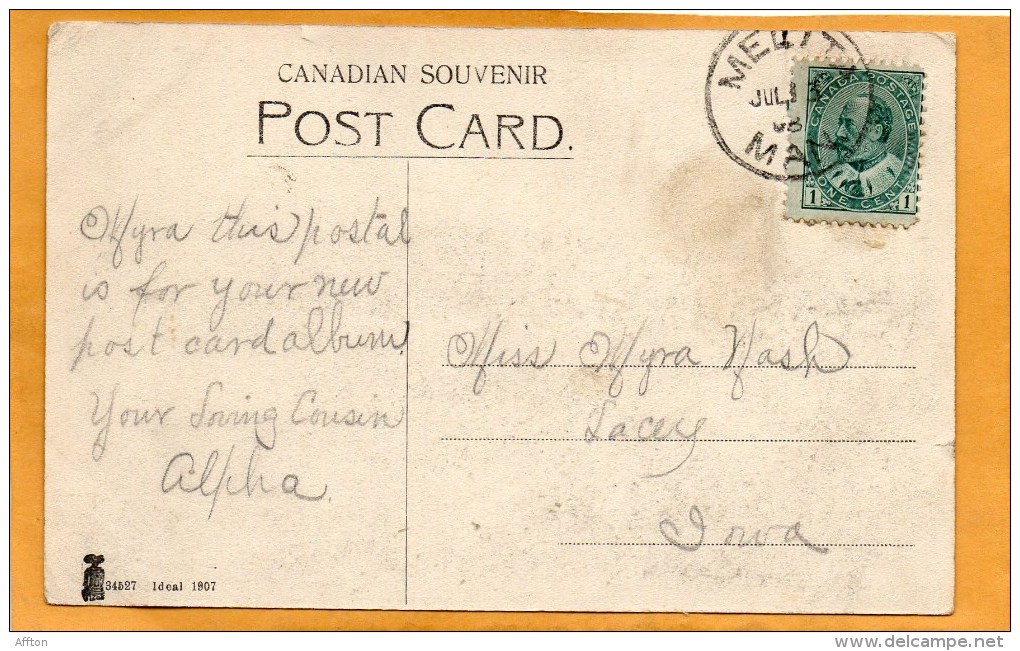 CANADIAN SOUVENIR
POST CARD.
MELITA
JUL
08
MAN
CANADA POSTAGE
1 ONE CENT 1
Myra this postal
is for your new
post card album.
Your Loving Cousin
Alpha.
Miss Myra Nash
Lacey
Iowa
34527 Ideal 1907
Affton
www.delcampe.net